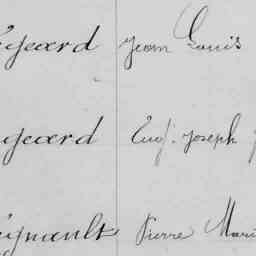 geard Jean Louis
geard Eug. Joseph
Pierre Mari